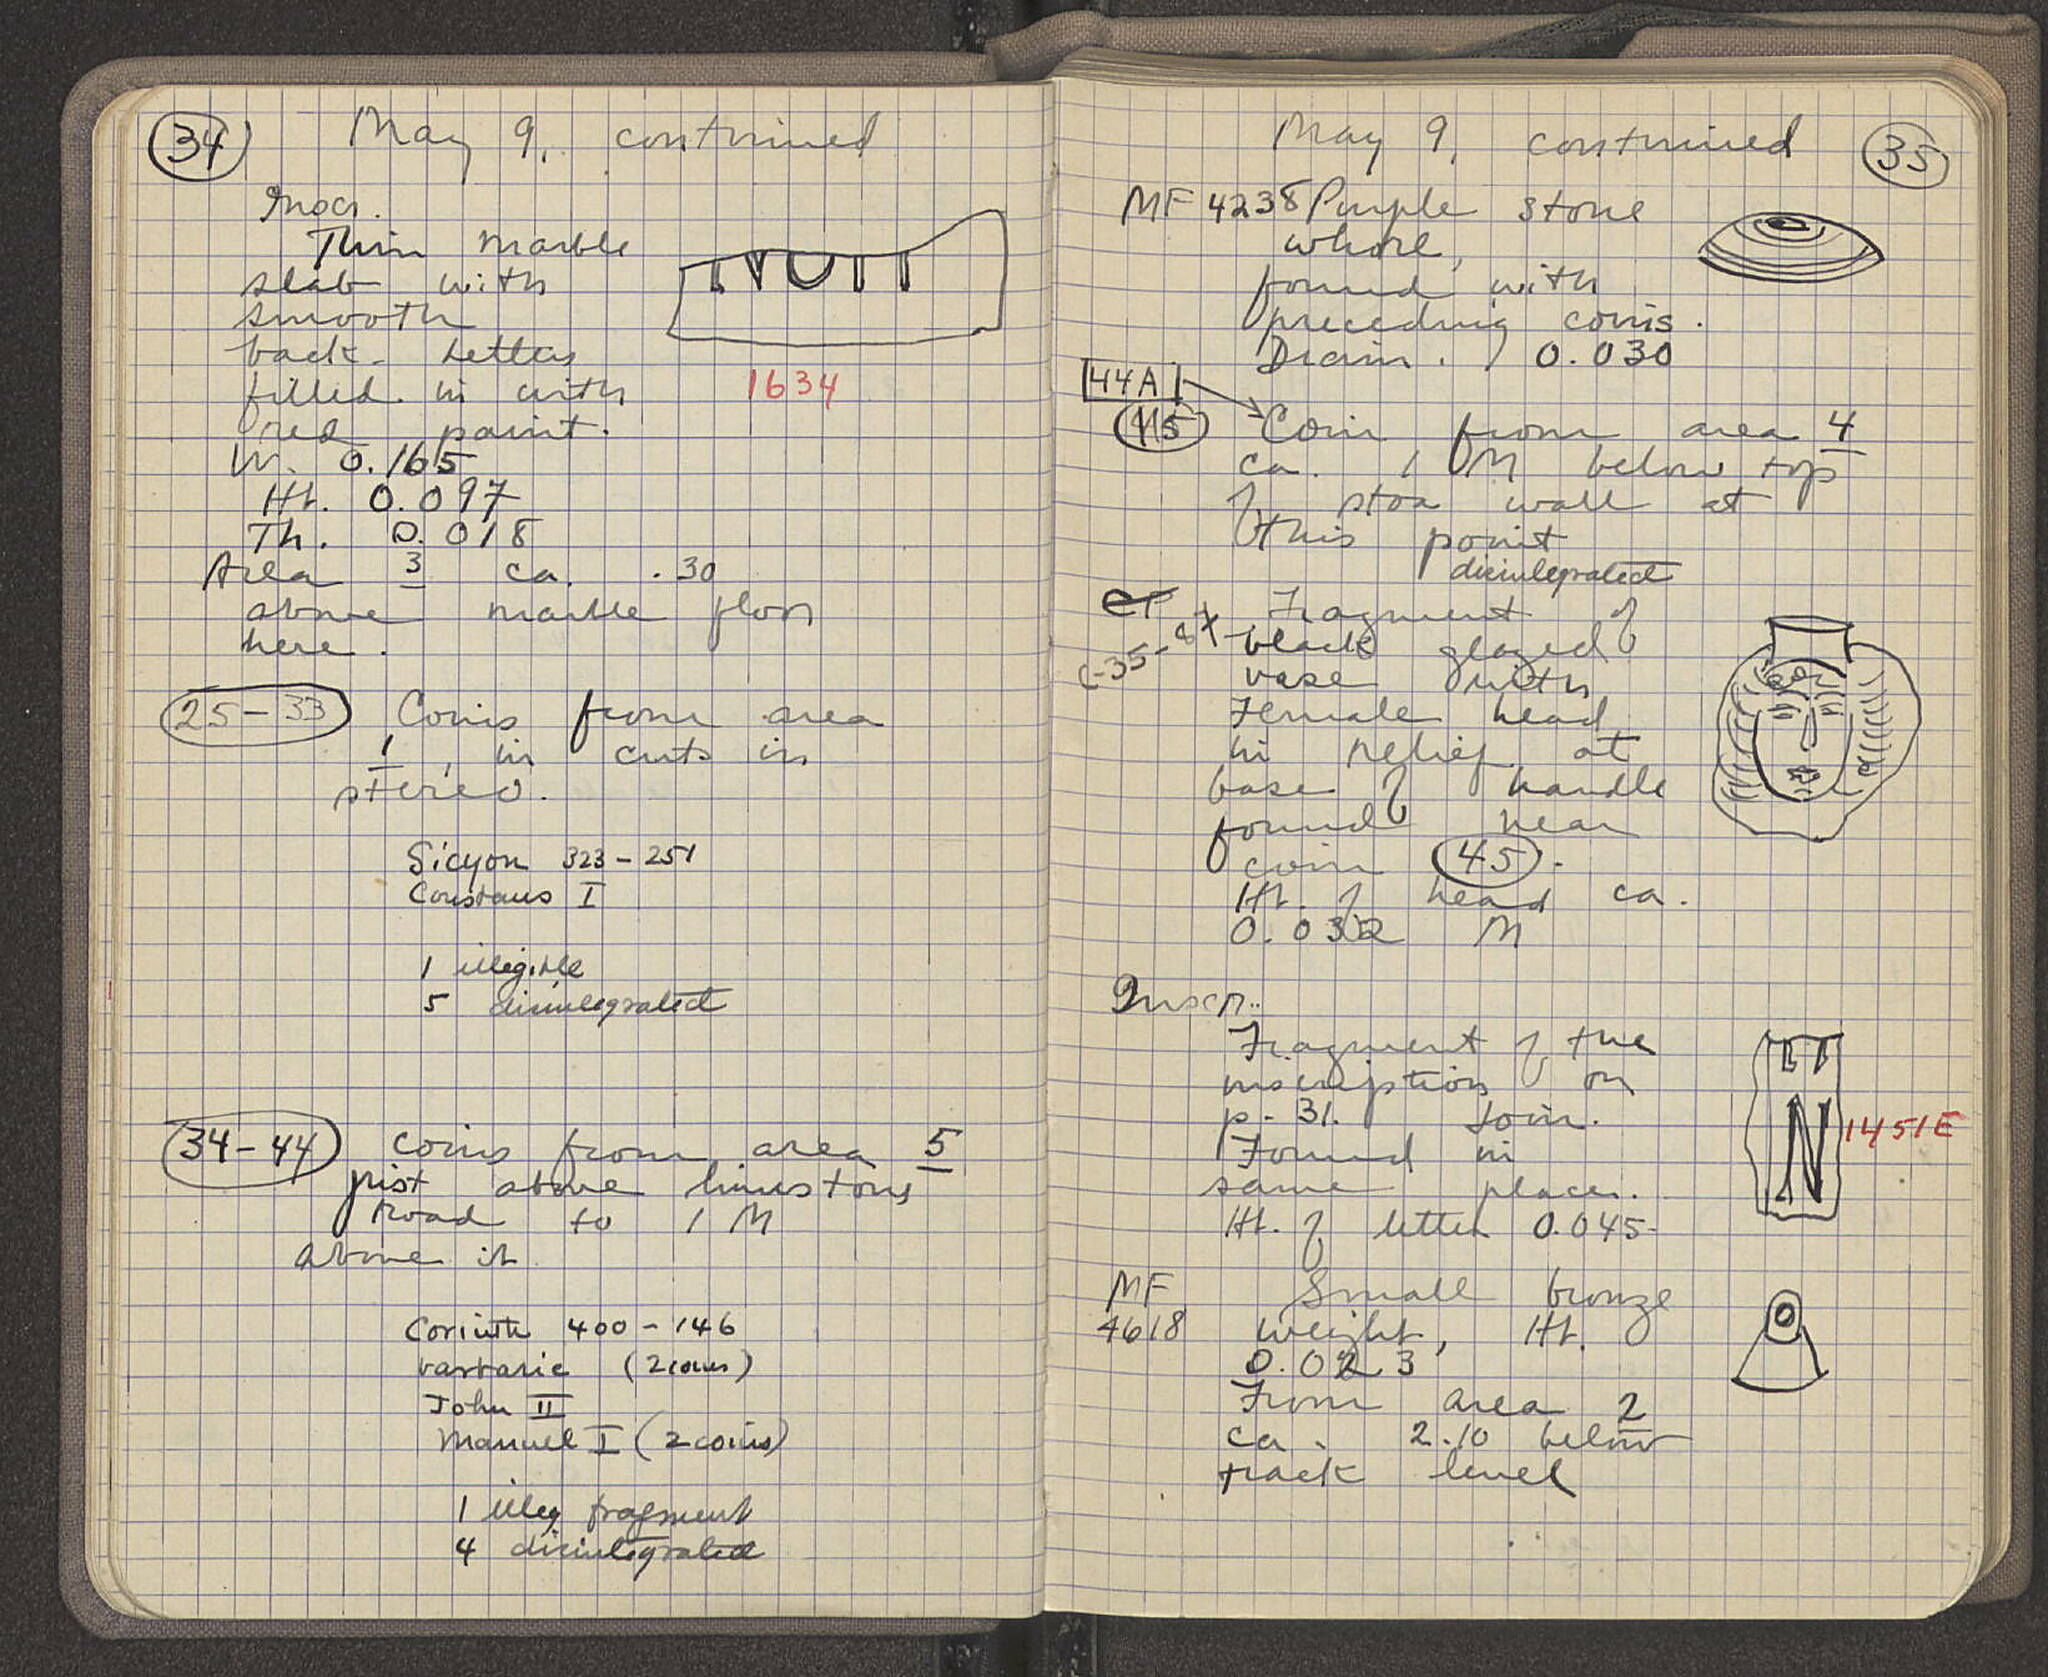 34
May 9, continued
Inscr.
Thin marble
slab with
smooth
back. Letters
filled in with
red paint.
1634
W. 0.165
Ht. 0.097
Th. 0.018
Area 3 ca. .30
above marble floor
here.
25-33 Coins from area
1, in cuts in
stereo.
Sicyon 323-251
Constans I
1 illegible
5 disintegrated
34-44 Coins from area 5
just above limestone
road to 1 M
above it
Corinth 400-146
barbaric (2 coins)
John II
Manuel I (2 coins)
1 illeg fragment
4 disintegrated
May 9, continued
35
MF 4238 Purple stone
whorl,
found with
preceding coins.
Diam. 0.030
44A
45 Coin from area 4
ca. 1 M below top
of stoa wall at
this point
disintegrated
CP Fragment of
C-35-87 black glazed
vase with
Female head
in relief at
base of handle
found near
coin 45.
Ht. of head ca.
0.032 M
Inscr.
Fragment of the
inscription on
p. 31. Join.
Found in
same place.
Ht. of letter 0.045
N
1451E
MF Small bronze
4618 weight, Ht.
0.023
From area 2
ca. 2.10 below
track level